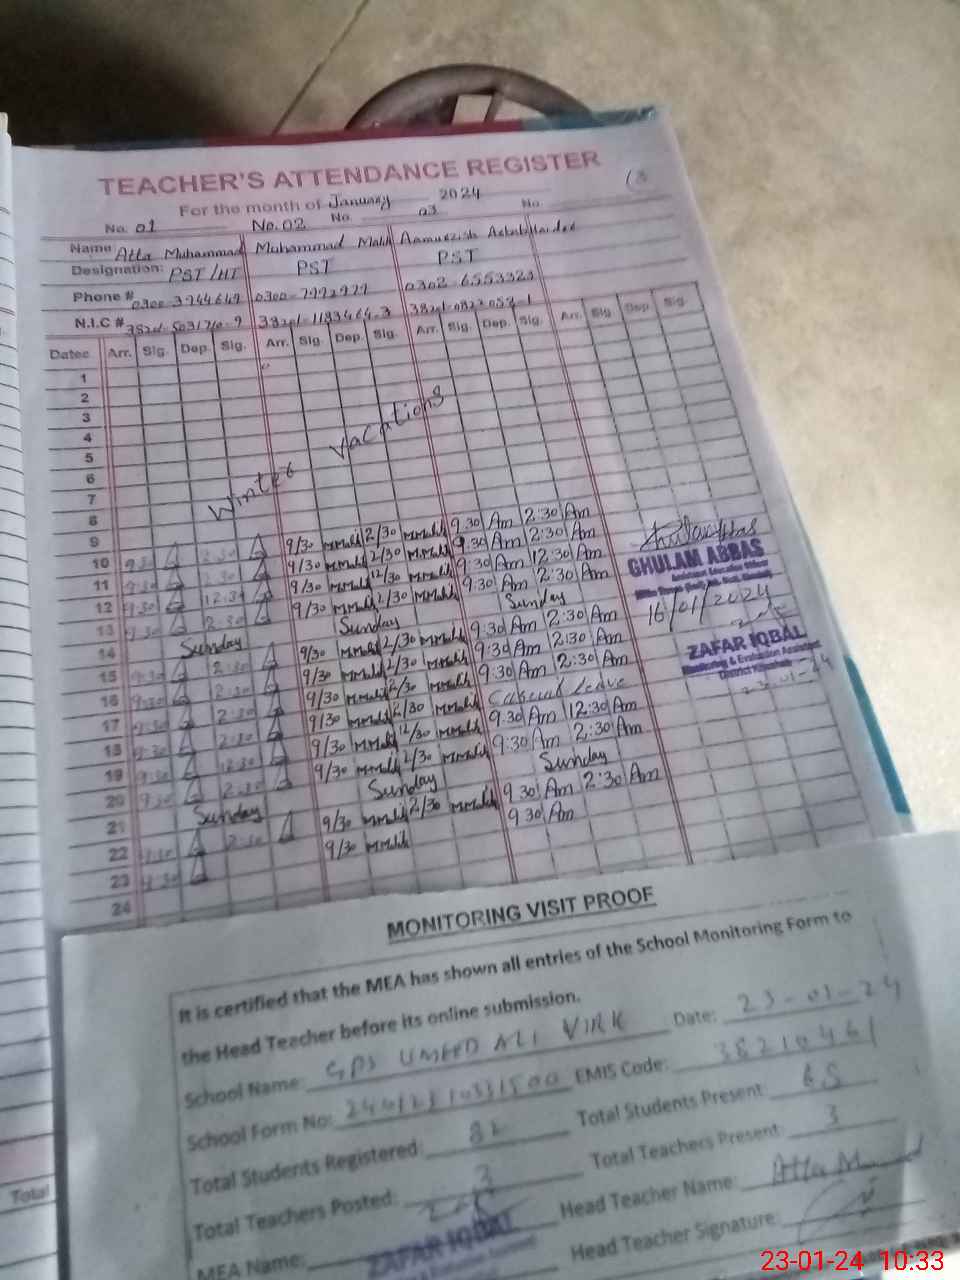 TEACHER'S ATTENDANCE REGISTER
For the month of January 2024
No. 01 No. 02 No. 03 No.
Name Atta Muhammad Muhammad Malik
Designation: PST/HT PST PST
Phone # 0300-3944649 0300-7992979 0302-6553323
N.I.C #
Dates Arr. Sig. Dep. Sig. Arr. Sig. Dep. Sig. Arr. Sig. Dep. Sig. Arr. Sig. Dep. Sig.
1
2
3
4
5
6
7
Winter Vacations
8
9
10 9:30 2:30 9/30 MMalik 2/30 MMalik 9:30 Am 2:30 Am
11 9:30 2:30 9/30 MMalik 2/30 MMalik 9:30 Am 2:30 Am
12 9:30 12:30 9/30 MMalik 12/30 MMalik 9:30 Am 12:30 Am
13 9:30 2:30 9/30 MMalik 2/30 MMalik 9:30 Am 2:30 Am
14 Sunday Sunday Sunday
15 9:30 2:30 9/30 MMalik 2/30 MMalik 9:30 Am 2:30 Am
16 9:30 2:30 9/30 MMalik 2/30 MMalik 9:30 Am 2:30 Am
17 9:30 2:30 9/30 MMalik 2/30 MMalik 9:30 Am 2:30 Am
18 9:30 2:30 9/30 MMalik 2/30 MMalik Leave
19 9:30 12:30 9/30 MMalik 12/30 MMalik 9:30 Am 12:30 Am
20 9:30 2:30 9/30 MMalik 2/30 MMalik 9:30 Am 2:30 Am
21 Sunday Sunday Sunday
22 9:30 2:30 9/30 MMalik 2/30 MMalik 9:30 Am 2:30 Am
23 9:30 9/30 MMalik 9:30 Am
24
GHULAM ABBAS
Assistant Education Officer
16/01/2024
ZAFAR IQBAL
Monitoring & Evaluation Assistant
District Khushab
23-01-24
Total
MONITORING VISIT PROOF
It is certified that the MEA has shown all entries of the School Monitoring Form to
the Head Teacher before its online submission.
School Name: GPS UMEED ALI VIRK Date: 23-01-24
School Form No: EMIS Code: 38210461
Total Students Registered: 82 Total Students Present: 65
Total Teachers Posted: 3 Total Teachers Present: 3
MEA Name: ZAFAR IQBAL Head Teacher Name: Atta M
Head Teacher Signature:
23-01-24 10:33